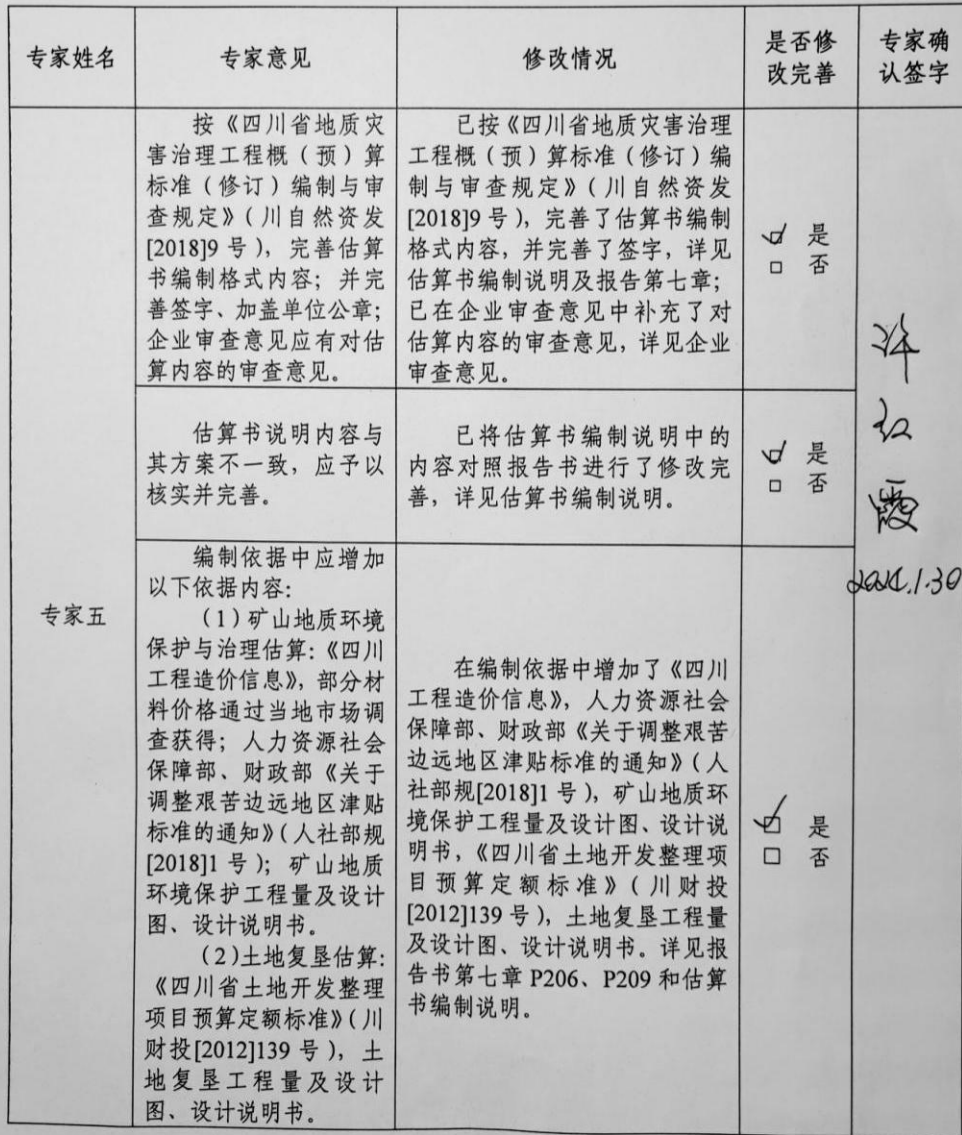 专家姓名
专家意见
修改情况
是否修
改完善
专家确
认签字
专家五
按《四川省地质灾
害治理工程概（预）算
标准（修订）编制与审
查规定》（川自然资发
[2018]9 号），完善估算
书编制格式内容；并完
善签字、加盖单位公章；
企业审查意见应有对估
算内容的审查意见。
已按《四川省地质灾害治理
工程概（预）算标准（修订）编
制与审查规定》（川自然资发
[2018]9 号），完善了估算书编制
格式内容，并完善了签字，详见
估算书编制说明及报告第七章；
已在企业审查意见中补充了对
估算内容的审查意见，详见企业
审查意见。
☑ 是
□ 否
估算书说明内容与
其方案不一致，应予以
核实并完善。
已将估算书编制说明中的
内容对照报告书进行了修改完
善，详见估算书编制说明。
☑ 是
□ 否
编制依据中应增加
以下依据内容：
（1）矿山地质环境
保护与治理估算：《四川
工程造价信息》，部分材
料价格通过当地市场调
查获得；人力资源社会
保障部、财政部《关于
调整艰苦边远地区津贴
标准的通知》（人社部规
[2018]1 号）；矿山地质
环境保护工程量及设计
图、设计说明书。
（2）土地复垦估算：
《四川省土地开发整理
项目预算定额标准》（川
财投[2012]139 号），土
地复垦工程量及设计
图、设计说明书。
在编制依据中增加了《四川
工程造价信息》，人力资源社会
保障部、财政部《关于调整艰苦
边远地区津贴标准的通知》（人
社部规[2018]1 号），矿山地质环
境保护工程量及设计图、设计说
明书，《四川省土地开发整理项
目预算定额标准》（川财投
[2012]139 号），土地复垦工程量
及设计图、设计说明书。详见报
告书第七章 P206、P209 和估算
书编制说明。
☑ 是
□ 否
红
霞